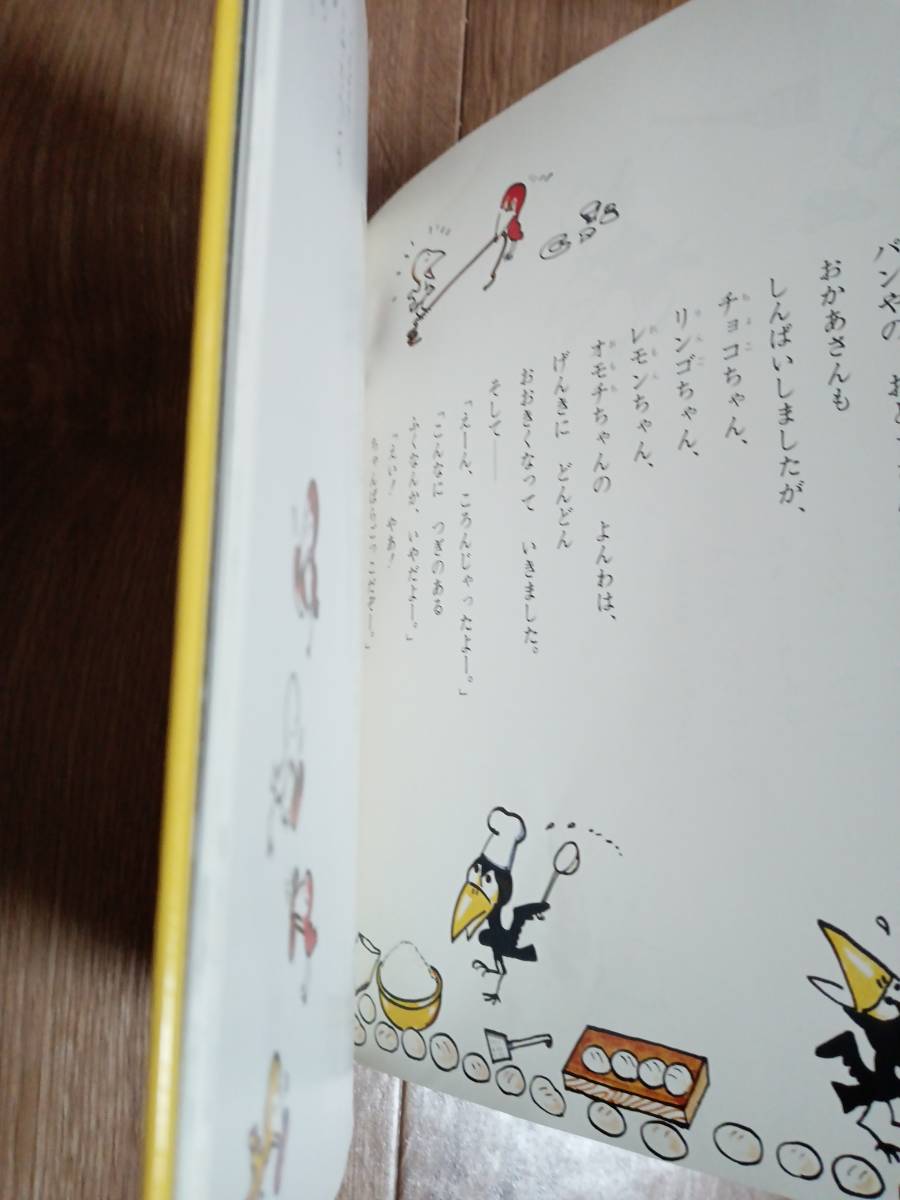 パンやの
おかあさんも
しんぱいしましたが、
チョコちゃん、
リンゴちゃん、
レモンちゃん、
オモチちゃんの よんわは、
げんきに どんどん
おおきくなって いきました。
そして——
「えーん、ころんじゃったよー。」
「こんなに つぎのある
ふくなんか、いやだよー。」
「えい！ やあ！